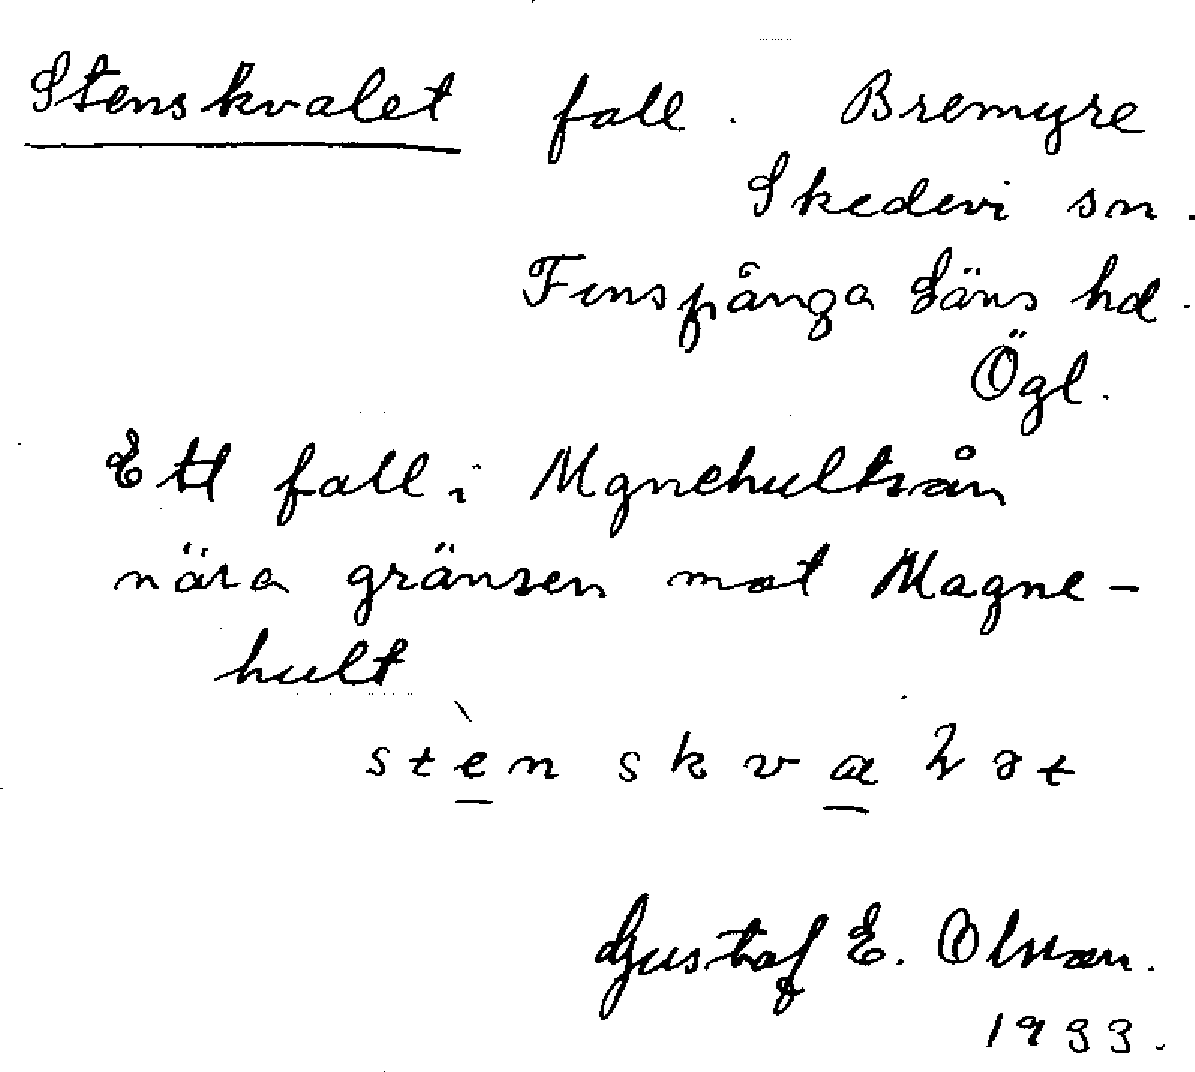 Stenskvalet fall. Bremyre
Skedevi sn.
Finspånga Läns hd.
Ögl.
Ett fall i Mgnehultsån
nära gränsen mot Magne-
hult
stènskvaɽət
Gustaf E. Olsson.
1933.